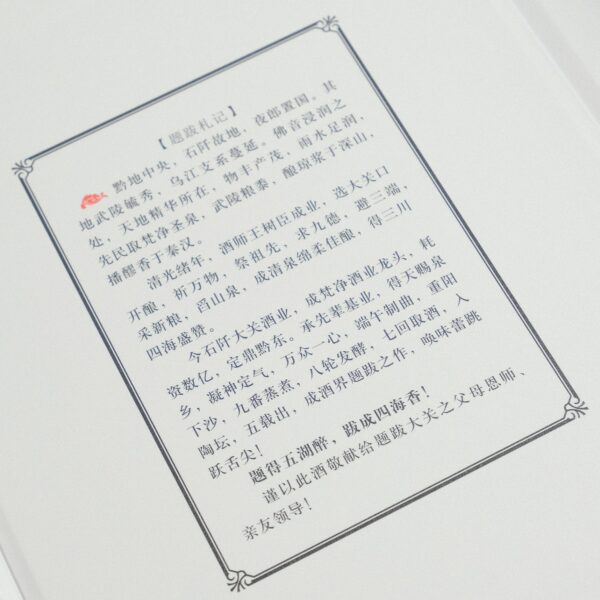 【题跋札记】
黔地中央，石阡故地，夜郎置国，其
地武陵毓秀，乌江支系蔓延。佛音浸润之
处，天地精华所在，物丰产茂，雨水足润，
先民取梵净圣泉，武陵粮黍，酿琼浆于深山，
播醴香于秦汉。
清光绪年，酒师王树臣成业，选大关口
开酿，祈万物，祭祖先，求九德，避三端，
采新粮，舀山泉，成清泉绵柔佳酿，得三川
四海盛赞。
今石阡大关酒业，成梵净酒业龙头，耗
资数亿，定鼎黔东。承先辈基业，得天赐泉
乡，凝神定气，万众一心，端午制曲，重阳
下沙，九番蒸煮，八轮发酵，七回取酒，入
陶坛，五载出，成酒界题跋之作，唤味蕾跳
跃舌尖！
题得五湖醉，跋成四海香！
谨以此酒敬献给题跋大关之父母恩师、
亲友领导！